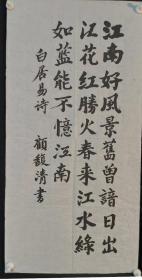 江南好風景舊曾諳日出
江花紅勝火春来江水綠
如藍能不憶江南
白居易诗 顧馥清書